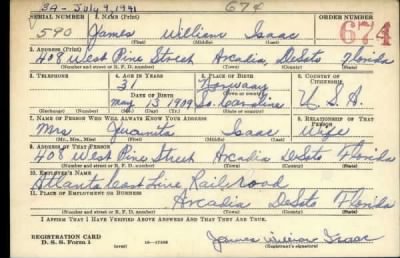 3A - July 9, 1941 674
SERIAL NUMBER 1. NAME (Print) ORDER NUMBER
590 James William Isaac 674
(First) (Middle) (Last)
2. ADDRESS (Print)
409 West Pine Street Arcadia, DeSoto Florida
(Number and street or R. F. D. number) (Town) (County) (State)
3. TELEPHONE 4. AGE IN YEARS 5. PLACE OF BIRTH 6. COUNTRY OF CITIZENSHIP
31 U. S. A.
DATE OF BIRTH
May 13 1909 So. Carolina
(Exchange) (Number) (Mo.) (Day) (Yr.) (State or country)
7. NAME OF PERSON WHO WILL ALWAYS KNOW YOUR ADDRESS 8. RELATIONSHIP OF THAT PERSON
Mrs Juanita Isaac Wife
(Mr., Mrs., Miss) (First) (Middle) (Last)
9. ADDRESS OF THAT PERSON
409 West Pine Street Arcadia DeSoto Florida
(Number and street or R. F. D. number) (Town) (County) (State)
10. EMPLOYER'S NAME
Atlantic Coast Line Railroad
11. PLACE OF EMPLOYMENT OR BUSINESS
Arcadia DeSoto Florida
(Number and street or R. F. D. number) (Town) (County) (State)
I AFFIRM THAT I HAVE VERIFIED ABOVE ANSWERS AND THAT THEY ARE TRUE.
REGISTRATION CARD
D. S. S. Form 1 (over) 16—17105 James William Isaac
(Registrant's signature)